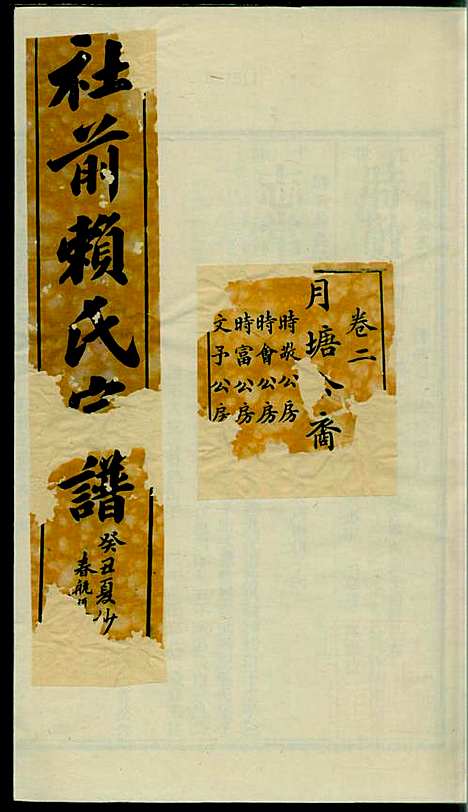 卷二
月塘公裔
時敬公房
時會公房
時富公房
文予公房
社前賴氏宗譜
癸丑夏
春航